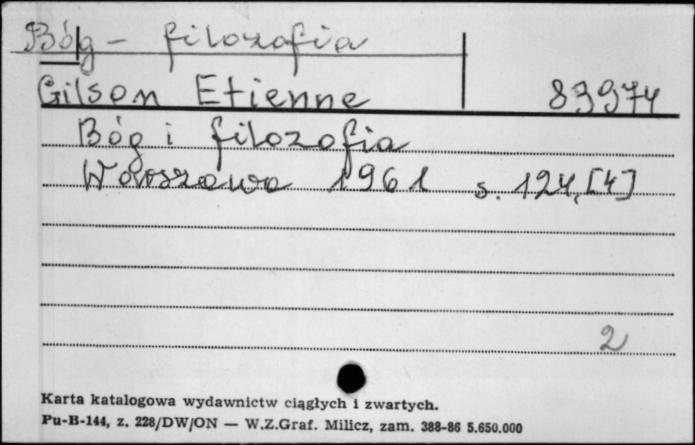 Bóg - filozofia
Gilson Etienne 83974
Bóg i filozofia
Warszawa 1961 s. 124, [4]
2
Karta katalogowa wydawnictw ciągłych i zwartych.
Pu-B-144, z. 228/DW/ON — W.Z.Graf. Milicz, zam. 388-86 5.650.000